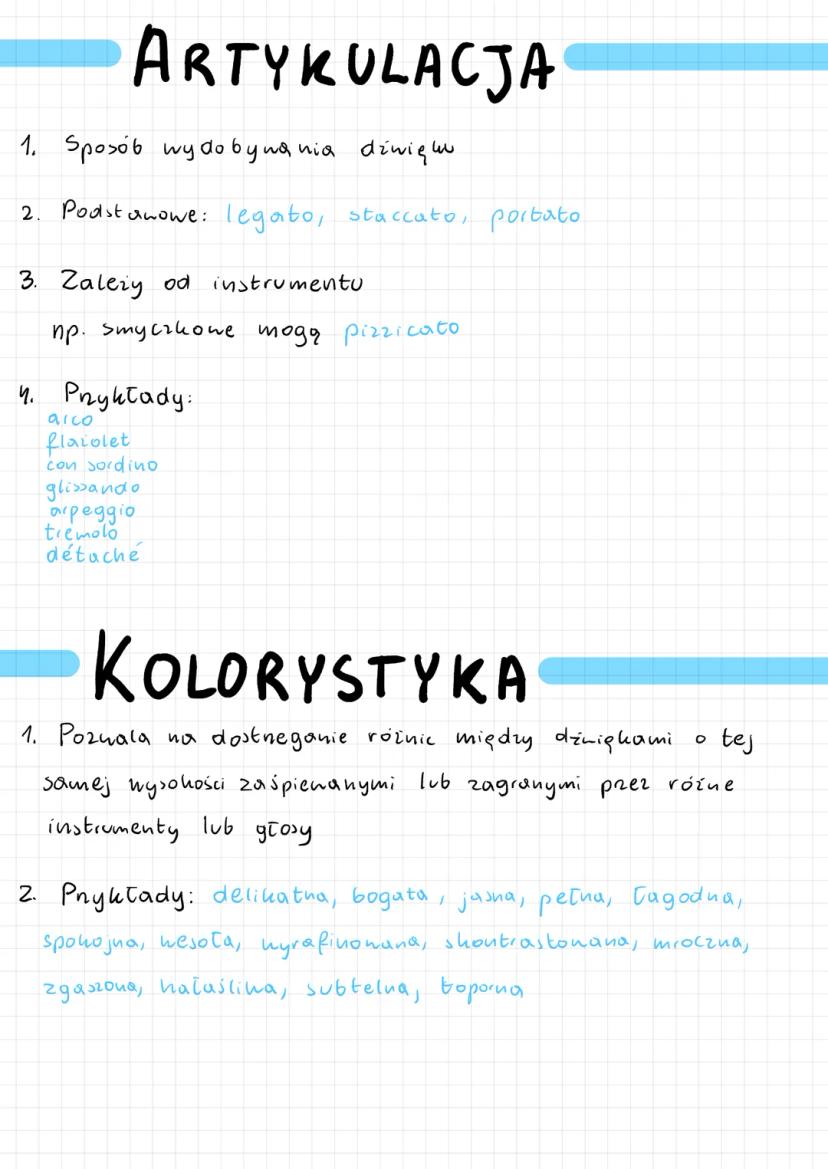 ARTYKULACJA
1. Sposób wydobywania dźwięku
2. Podstawowe: legato, staccato, portato
3. Zależy od instrumentu
np. smyczkowe mogą pizzicato
4. Przykłady:
arco
flażolet
con sordino
glissando
arpeggio
tremolo
détaché
KOLORYSTYKA
1. Pozwala na dostrzeganie różnic między dźwiękami o tej
samej wysokości zaśpiewanymi lub zagranymi przez różne
instrumenty lub głosy
2. Przykłady: delikatna, bogata, jasna, pełna, łagodna,
spokojna, wesoła, wyrafinowana, skontrastowana, mroczna,
zgaszona, hałaśliwa, subtelna, toporna